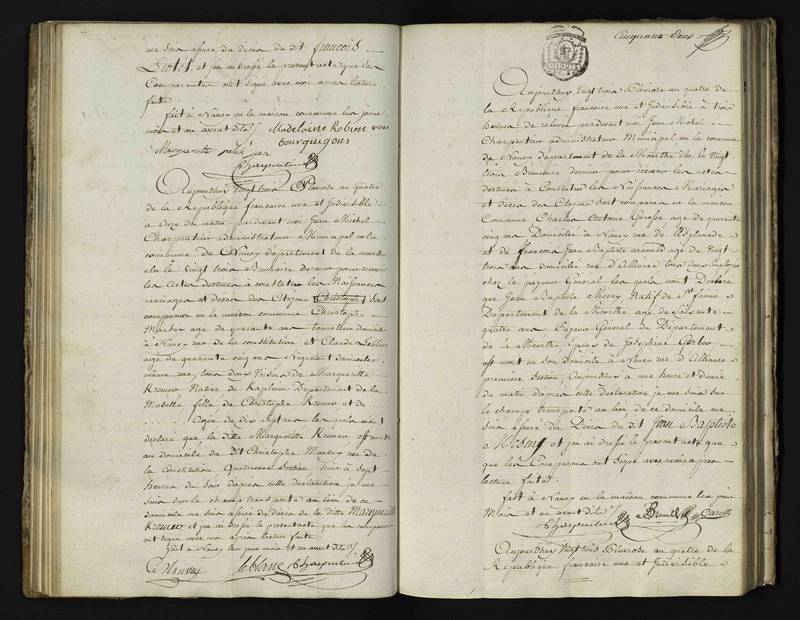 me suis assuré du décès du dit françois
et j'ai dressé le present acte que les
Comparantes ont signé avec moi apres lecture
faite
fait à Nancy en la maison commune les jour
mois et an avant dits
Madelaine Robine
Marguerite petit jean
Bourguignons
Charpentier
Aujourdhuy Vingt trois Pluviose an quatre
de la République francaise une et Indivisible
à onze du matin pardevant moi Jean Michel
Charpentier administrateur Municipal en la
commune de Nancy département de la meurthe
élu le Vingt trois Brumaire dernier pour recevoir
les Actes destinés à constater les Naissances
mariages et décès des Citoyens Christophe sont
comparus en la maison commune Christophe
agé de quarante ans domicilié
à Nancy rue de la constitution et Claude leblanc
agé de quarante cinq ans Négociant domicilié
même rue tous deux Voisins de Margueritte
Kremer Native de Département de la
Moselle fille de Christophe Kremer et de
Agée de dix sept ans les quels m'ont
déclaré que la ditte Margueritte Kremer est morte
au domicile de dit Christophe rue de
la Constitution Quatrieme section hier à sept
heures du soir dapres cette déclaration je me
suis sur le champ transporté au lieu de ce
domicile me suis assuré du décès de la ditte Margueritte
Kremer et j'ai dressé le present acte que les comparans
ont signé avec moi après lecture faite
fait à Nancy les jour mois et an avant dits
leblanc Charpentier
Cinquante Deux
Aujourdhuy Vingt trois Pluviose an quatre de
la République francaise une et Indivisible à trois
heures de pardevant moi Jean Michel
Charpentier administrateur Municipal en la commune
de Nancy département de la Meurthe élu le Vingt
trois Brumaire dernier pour recevoir les actes
destinés à Constater les Naissances Mariages
et décès des Citoyens sont comparus en la maison
Commune Charles Antoine agé de quarante
cinq ans Domicilié à Nancy rue de l'Esplanade
et de françois Jean Baptiste agé de Vingt
trois ans domicilié rue d'Alliance tous deux employés
chez le payeur Général les quels m'ont Déclaré
que Jean Baptiste Natif de
Département de la Meurthe agé de Soixante
quatre ans Payeur Général du Département
de la Meurthe Epoux de Joséphine
est mort en son domicile à Nancy rue d'Alliance
premiere Section Aujourdhuy à une heure et demie
du matin dapres cette déclaration je me suis sur
le champ transporté au lieu de ce domicile me
suis assuré du Décès du dit Jean Baptiste
et j'ai dressé le present acte que
que les Comparans ont signé avec moi apres
lecture faite
fait à Nancy en la maison commune les jour
Mois et an avant dits
Charpentier
Aujourdhuy Vingt trois Pluviose an quatre de la
République francaise une et Indivisible